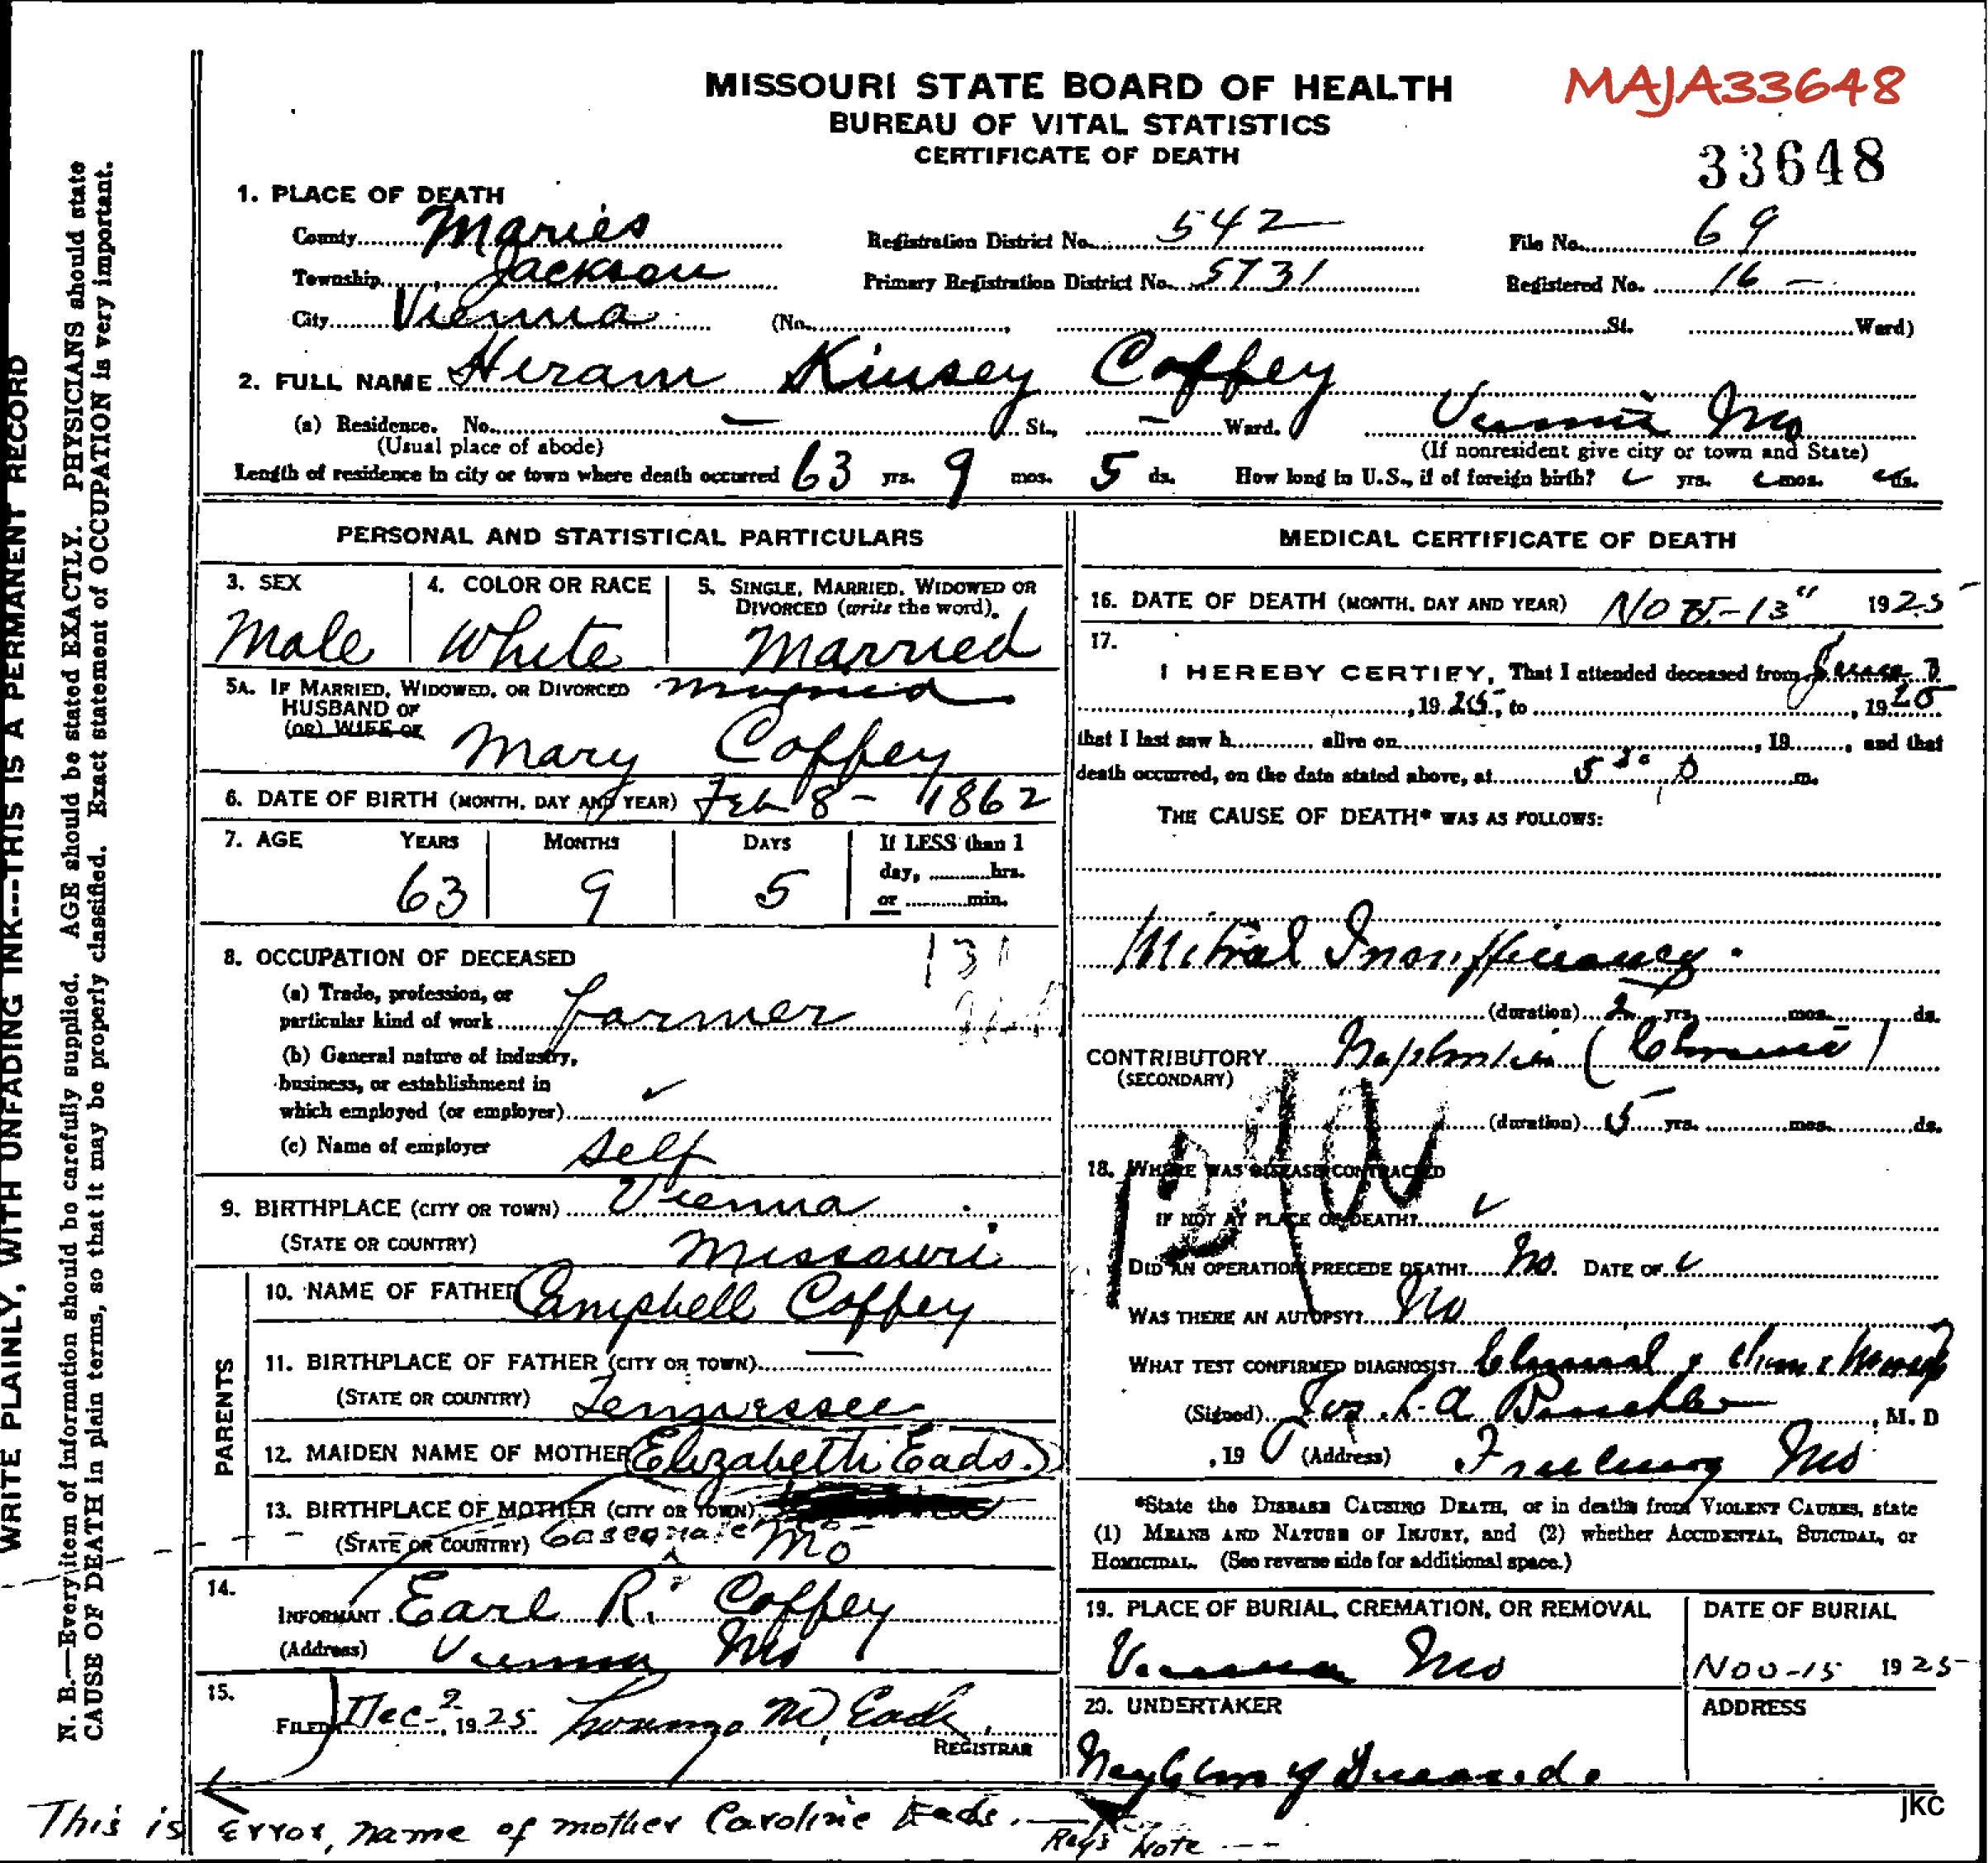 MISSOURI STATE BOARD OF HEALTH
BUREAU OF VITAL STATISTICS
CERTIFICATE OF DEATH
MAJA33648
33648
1. PLACE OF DEATH
County Maries Registration District No. 542 File No. 69
Township Jackson Primary Registration District No. 5731 Registered No. 16 -
City Vienna (No. , St. Ward)
2. FULL NAME Hiram Kinsey Coffey
(a) Residence. No. — St., — Ward. Vienna Mo
(Usual place of abode) (If nonresident give city or town and State)
Length of residence in city or town where death occurred 63 yrs. 9 mos. 5 ds. How long in U.S., if of foreign birth? yrs. mos. ds.
PERSONAL AND STATISTICAL PARTICULARS
3. SEX
Male
4. COLOR OR RACE
White
5. SINGLE, MARRIED, WIDOWED OR
DIVORCED (write the word).
Married
5A. IF MARRIED, WIDOWED, OR DIVORCED
HUSBAND OF
(OR) WIFE OF
Mary Coffey
6. DATE OF BIRTH (MONTH, DAY AND YEAR) Feb 8 - 1862
7. AGE YEARS MONTHS DAYS If LESS than 1
day, hrs.
63 9 5 or min.
8. OCCUPATION OF DECEASED 131
(a) Trade, profession, or
particular kind of work Farmer
(b) General nature of industry,
business, or establishment in
which employed (or employer)
(c) Name of employer Self
9. BIRTHPLACE (CITY OR TOWN) Vienna
(STATE OR COUNTRY) Missouri
PARENTS
10. NAME OF FATHER Campbell Coffey
11. BIRTHPLACE OF FATHER (CITY OR TOWN) —
(STATE OR COUNTRY) Tennessee
12. MAIDEN NAME OF MOTHER Elizabeth Eads.
13. BIRTHPLACE OF MOTHER (CITY OR TOWN)
(STATE OR COUNTRY) Mo
14.
INFORMANT Earl R. Coffey
(Address) Vienna Mo
15.
FILED Dec 2, 1925 M Eads
REGISTRAR
MEDICAL CERTIFICATE OF DEATH
16. DATE OF DEATH (MONTH, DAY AND YEAR) Nov-13" 1925
17.
I HEREBY CERTIFY, That I attended deceased from
, 19 25, to , 19 25
that I last saw h alive on , 19 , and that
death occurred, on the date stated above, at 5 30 p m.
THE CAUSE OF DEATH* WAS AS FOLLOWS:
Mitral Insufficiency.
(duration) 2 yrs. mos. ds.
CONTRIBUTORY Nephritis (Chronic)
(SECONDARY)
(duration) 5 yrs. mos. ds.
18. WHERE WAS DISEASE CONTRACTED
IF NOT AT PLACE OF DEATH?
DID AN OPERATION PRECEDE DEATH? No. DATE OF
WAS THERE AN AUTOPSY? No
WHAT TEST CONFIRMED DIAGNOSIS?
(Signed) Jos. L. A , M. D
, 19 (Address) Freeburg Mo
*State the DISEASE CAUSING DEATH, or in deaths from VIOLENT CAUSES, state
(1) MEANS AND NATURE OF INJURY, and (2) whether ACCIDENTAL, SUICIDAL, or
HOMICIDAL. (See reverse side for additional space.)
19. PLACE OF BURIAL, CREMATION, OR REMOVAL DATE OF BURIAL
Vienna Mo Nov-15 1925
20. UNDERTAKER ADDRESS
This is Error, name of mother Caroline Eads. — Reg's Note ---
jkc
WRITE PLAINLY, WITH UNFADING INK---THIS IS A PERMANENT RECORD
N. B.—Every item of information should be carefully supplied. AGE should be stated EXACTLY. PHYSICIANS should state
CAUSE OF DEATH in plain terms, so that it may be properly classified. Exact statement of OCCUPATION is very important.